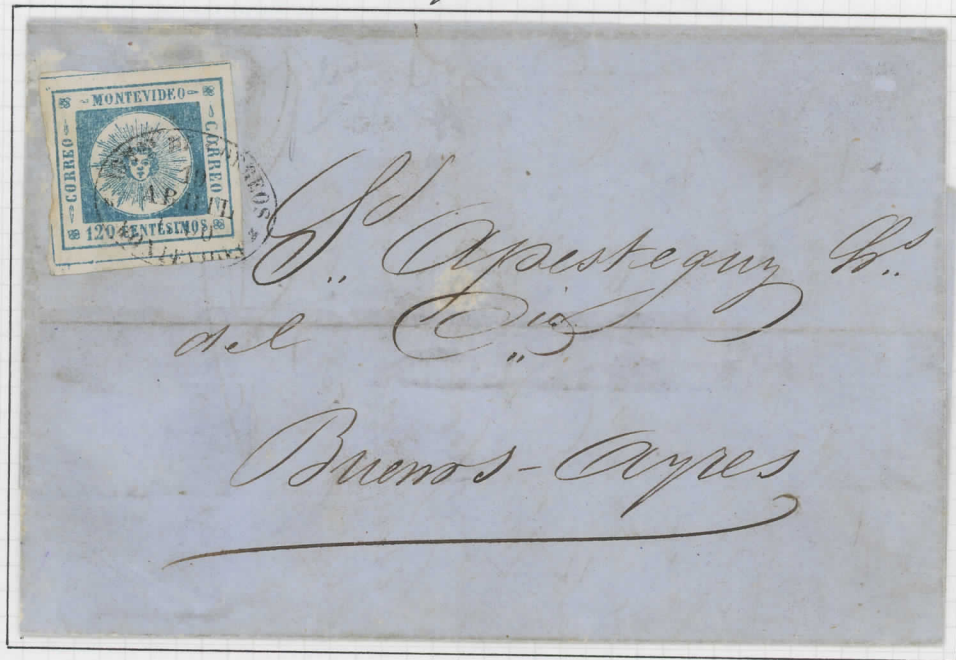 MONTEVIDEO
CORREO
CORREO
120 CENTESIMOS
ABRIL
Sd. Apesteguy hs.
del Cio.
Buenos-Ayres